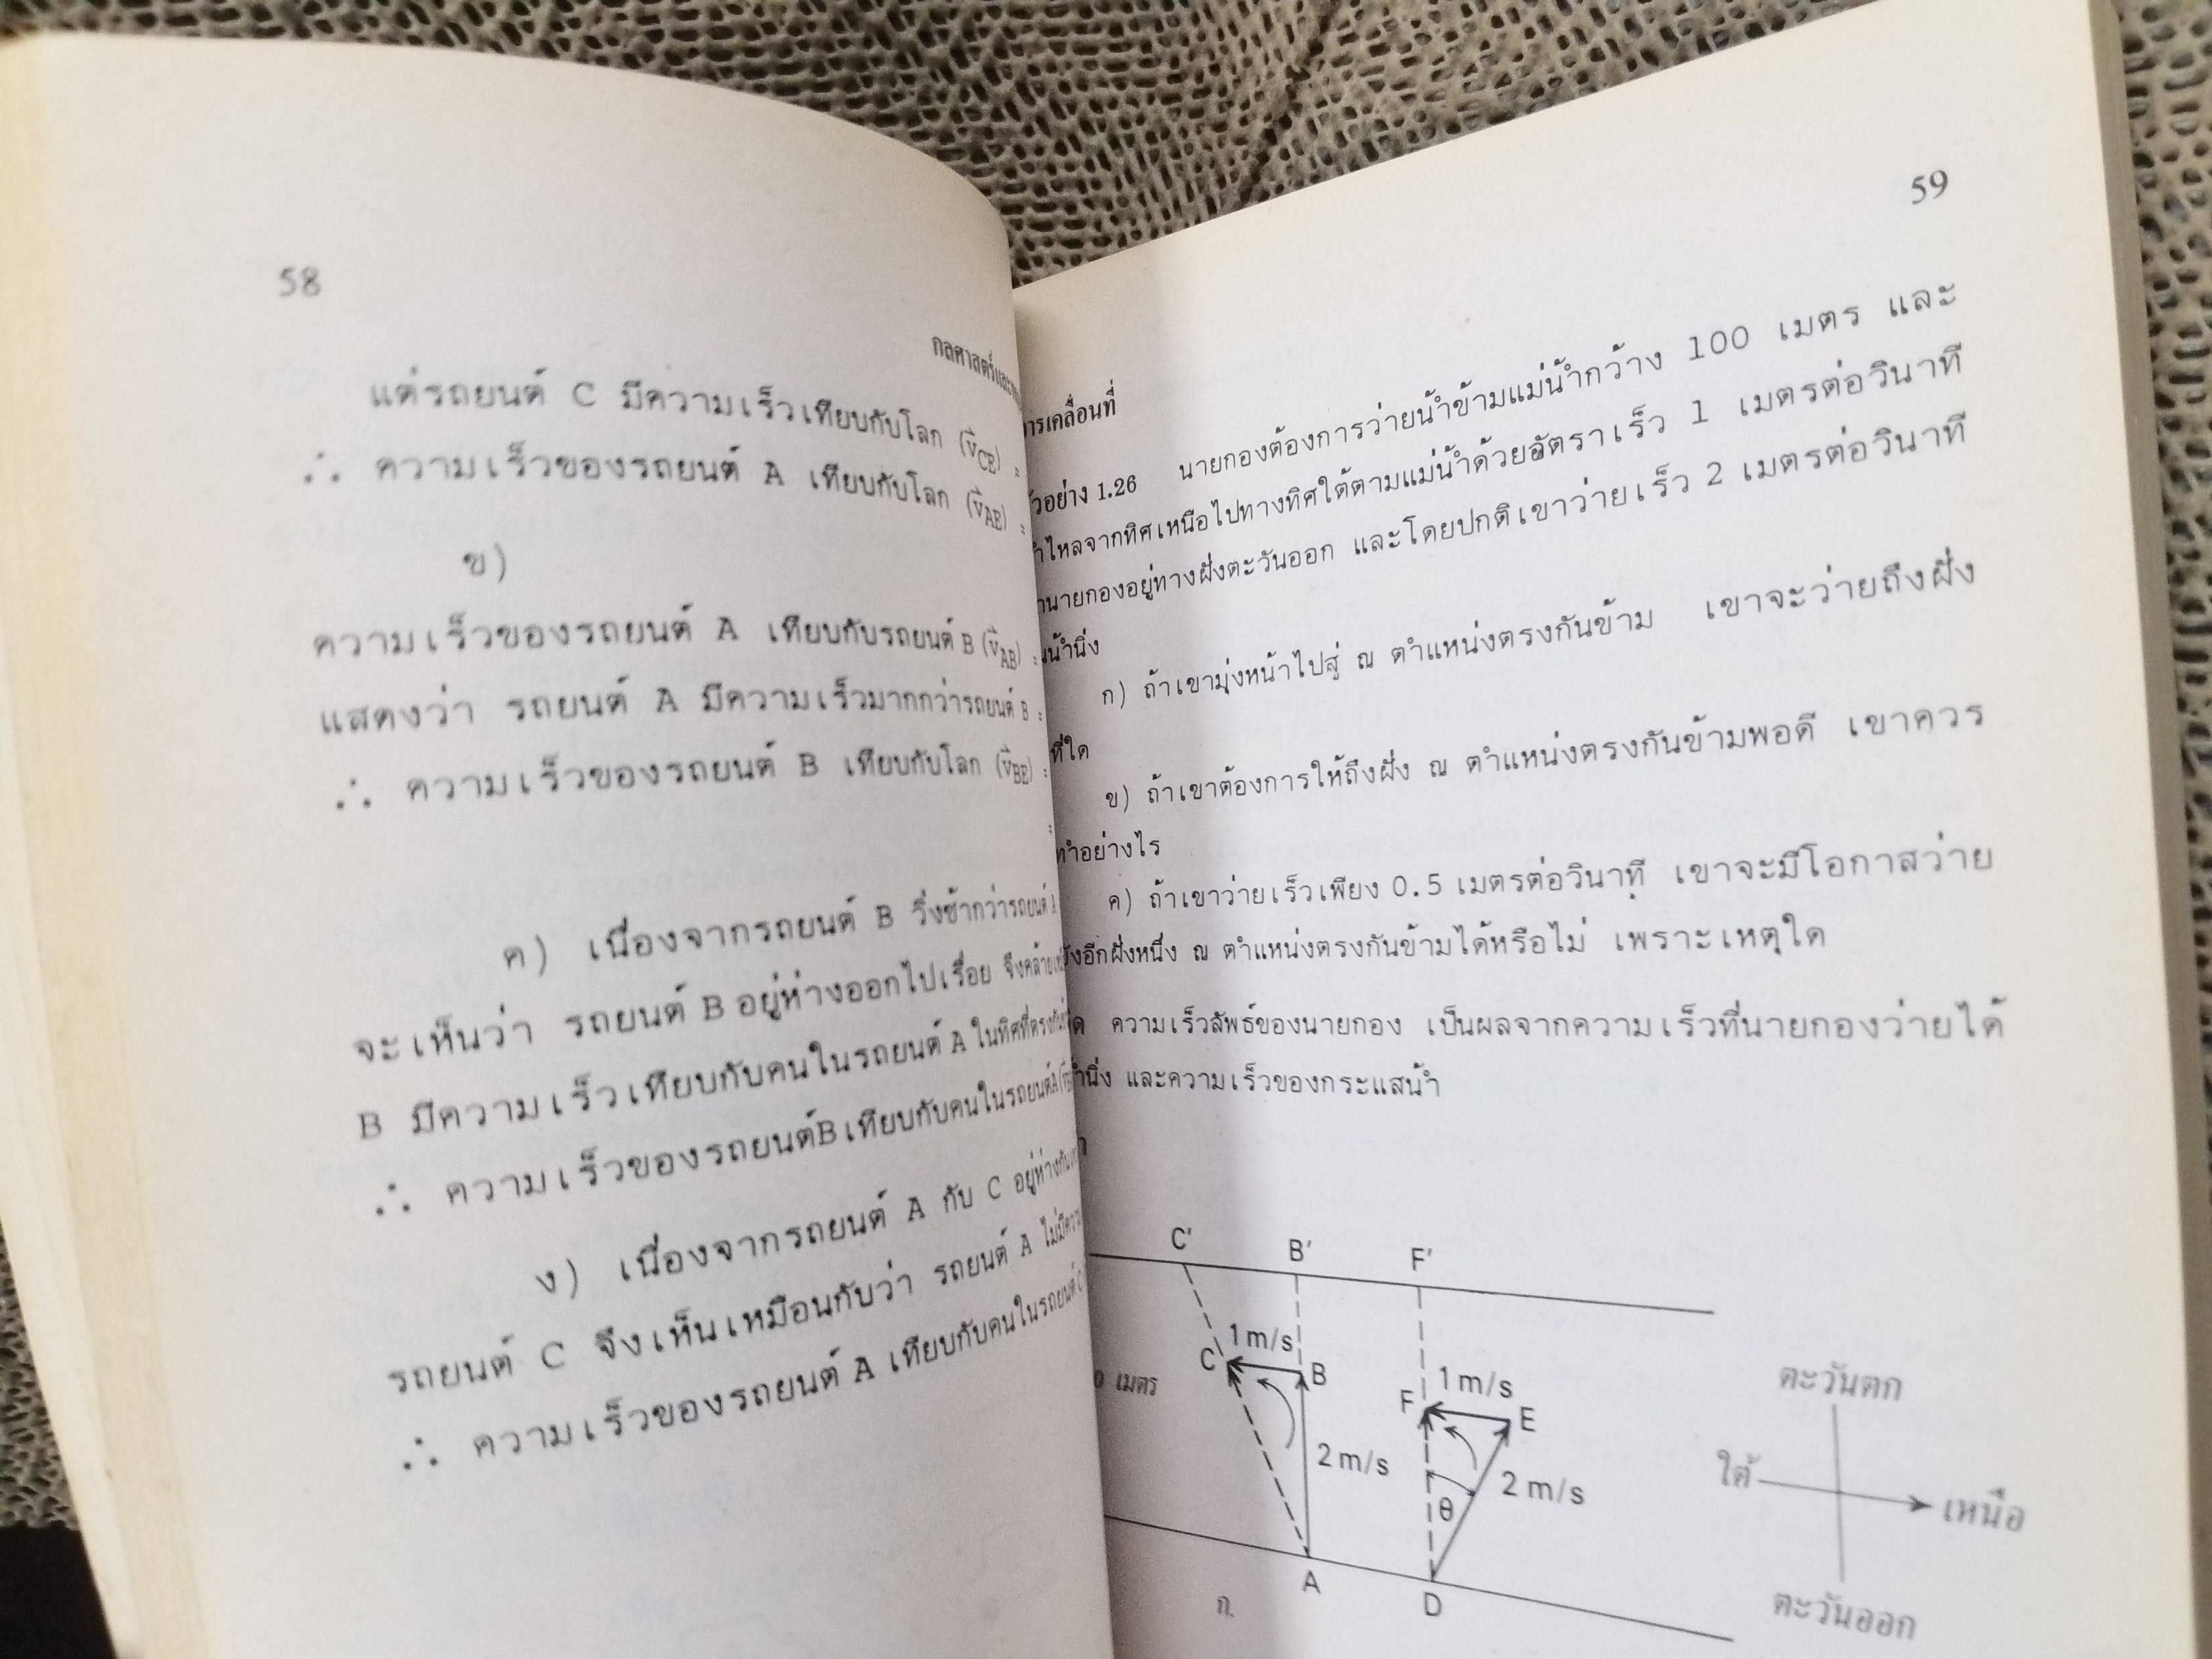 58
แต่รถยนต์ C มีความเร็วเทียบกับโลก (v⃗CE) =
∴ ความเร็วของรถยนต์ A เทียบกับโลก (v⃗AE) =
ข)
ความเร็วของรถยนต์ A เทียบกับรถยนต์ B (v⃗AB) =
แสดงว่า รถยนต์ A มีความเร็วมากกว่ารถยนต์ B =
∴ ความเร็วของรถยนต์ B เทียบกับโลก (v⃗BE) =
=
ค) เนื่องจากรถยนต์ B วิ่งช้ากว่ารถยนต์ A
จะเห็นว่า รถยนต์ B อยู่ห่างออกไปเรื่อย จึงคล้าย
B มีความเร็วเทียบกับคนในรถยนต์ A ในทิศที่ตรงกัน
∴ ความเร็วของรถยนต์B เทียบกับคนในรถยนต์A
ง) เนื่องจากรถยนต์ A กับ C อยู่ห่างกัน
รถยนต์ C จึงเห็นเหมือนกับว่า รถยนต์ A ไม่มี
∴ ความเร็วของรถยนต์ A เทียบกับคนในรถยนต์ C
59
การเคลื่อนที่
ตัวอย่าง 1.26 นายกองต้องการว่ายน้ำข้ามแม่น้ำกว้าง 100 เมตร และ
ไหลจากทิศเหนือไปทางทิศใต้ตามแม่น้ำด้วยอัตราเร็ว 1 เมตรต่อวินาที
นายกองอยู่ทางฝั่งตะวันออก และโดยปกติเขาว่ายเร็ว 2 เมตรต่อวินาที
น้ำนิ่ง
ก) ถ้าเขามุ่งหน้าไปสู่ ณ ตำแหน่งตรงกันข้าม เขาจะว่ายถึงฝั่ง
ที่ใด
ข) ถ้าเขาต้องการให้ถึงฝั่ง ณ ตำแหน่งตรงกันข้ามพอดี เขาควร
ทำอย่างไร
ค) ถ้าเขาว่ายเร็วเพียง 0.5 เมตรต่อวินาที เขาจะมีโอกาสว่าย
อีกฝั่งหนึ่ง ณ ตำแหน่งตรงกันข้ามได้หรือไม่ เพราะเหตุใด
ความเร็วลัพธ์ของนายกอง เป็นผลจากความเร็วที่นายกองว่ายได้
น้ำนิ่ง และความเร็วของกระแสน้ำ
C' B' F'
1 m/s
C B
1 m/s
F E
เมตร
2 m/s
2 m/s
θ
A
D
ก.
ตะวันตก
ใต้ เหนือ
ตะวันออก